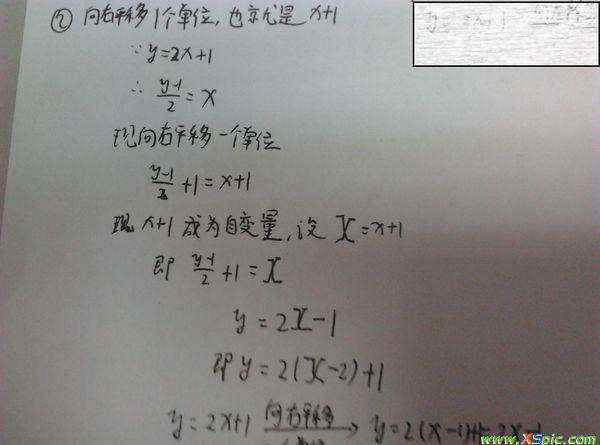 ② 向右平移1个单位,也就是x+1
∵ y=2x+1
∴ (y-1)/2 = x
现向右平移一个单位
(y-1)/2 +1 = x+1
现 x+1 成为自变量,设 X = x+1
即 (y-1)/2 +1 = X
y = 2X-1
即 y = 2(X-2)+1
y = 2x+1 向右平移 → y = 2(x-1)+1=2x-1
www.XSpic.com